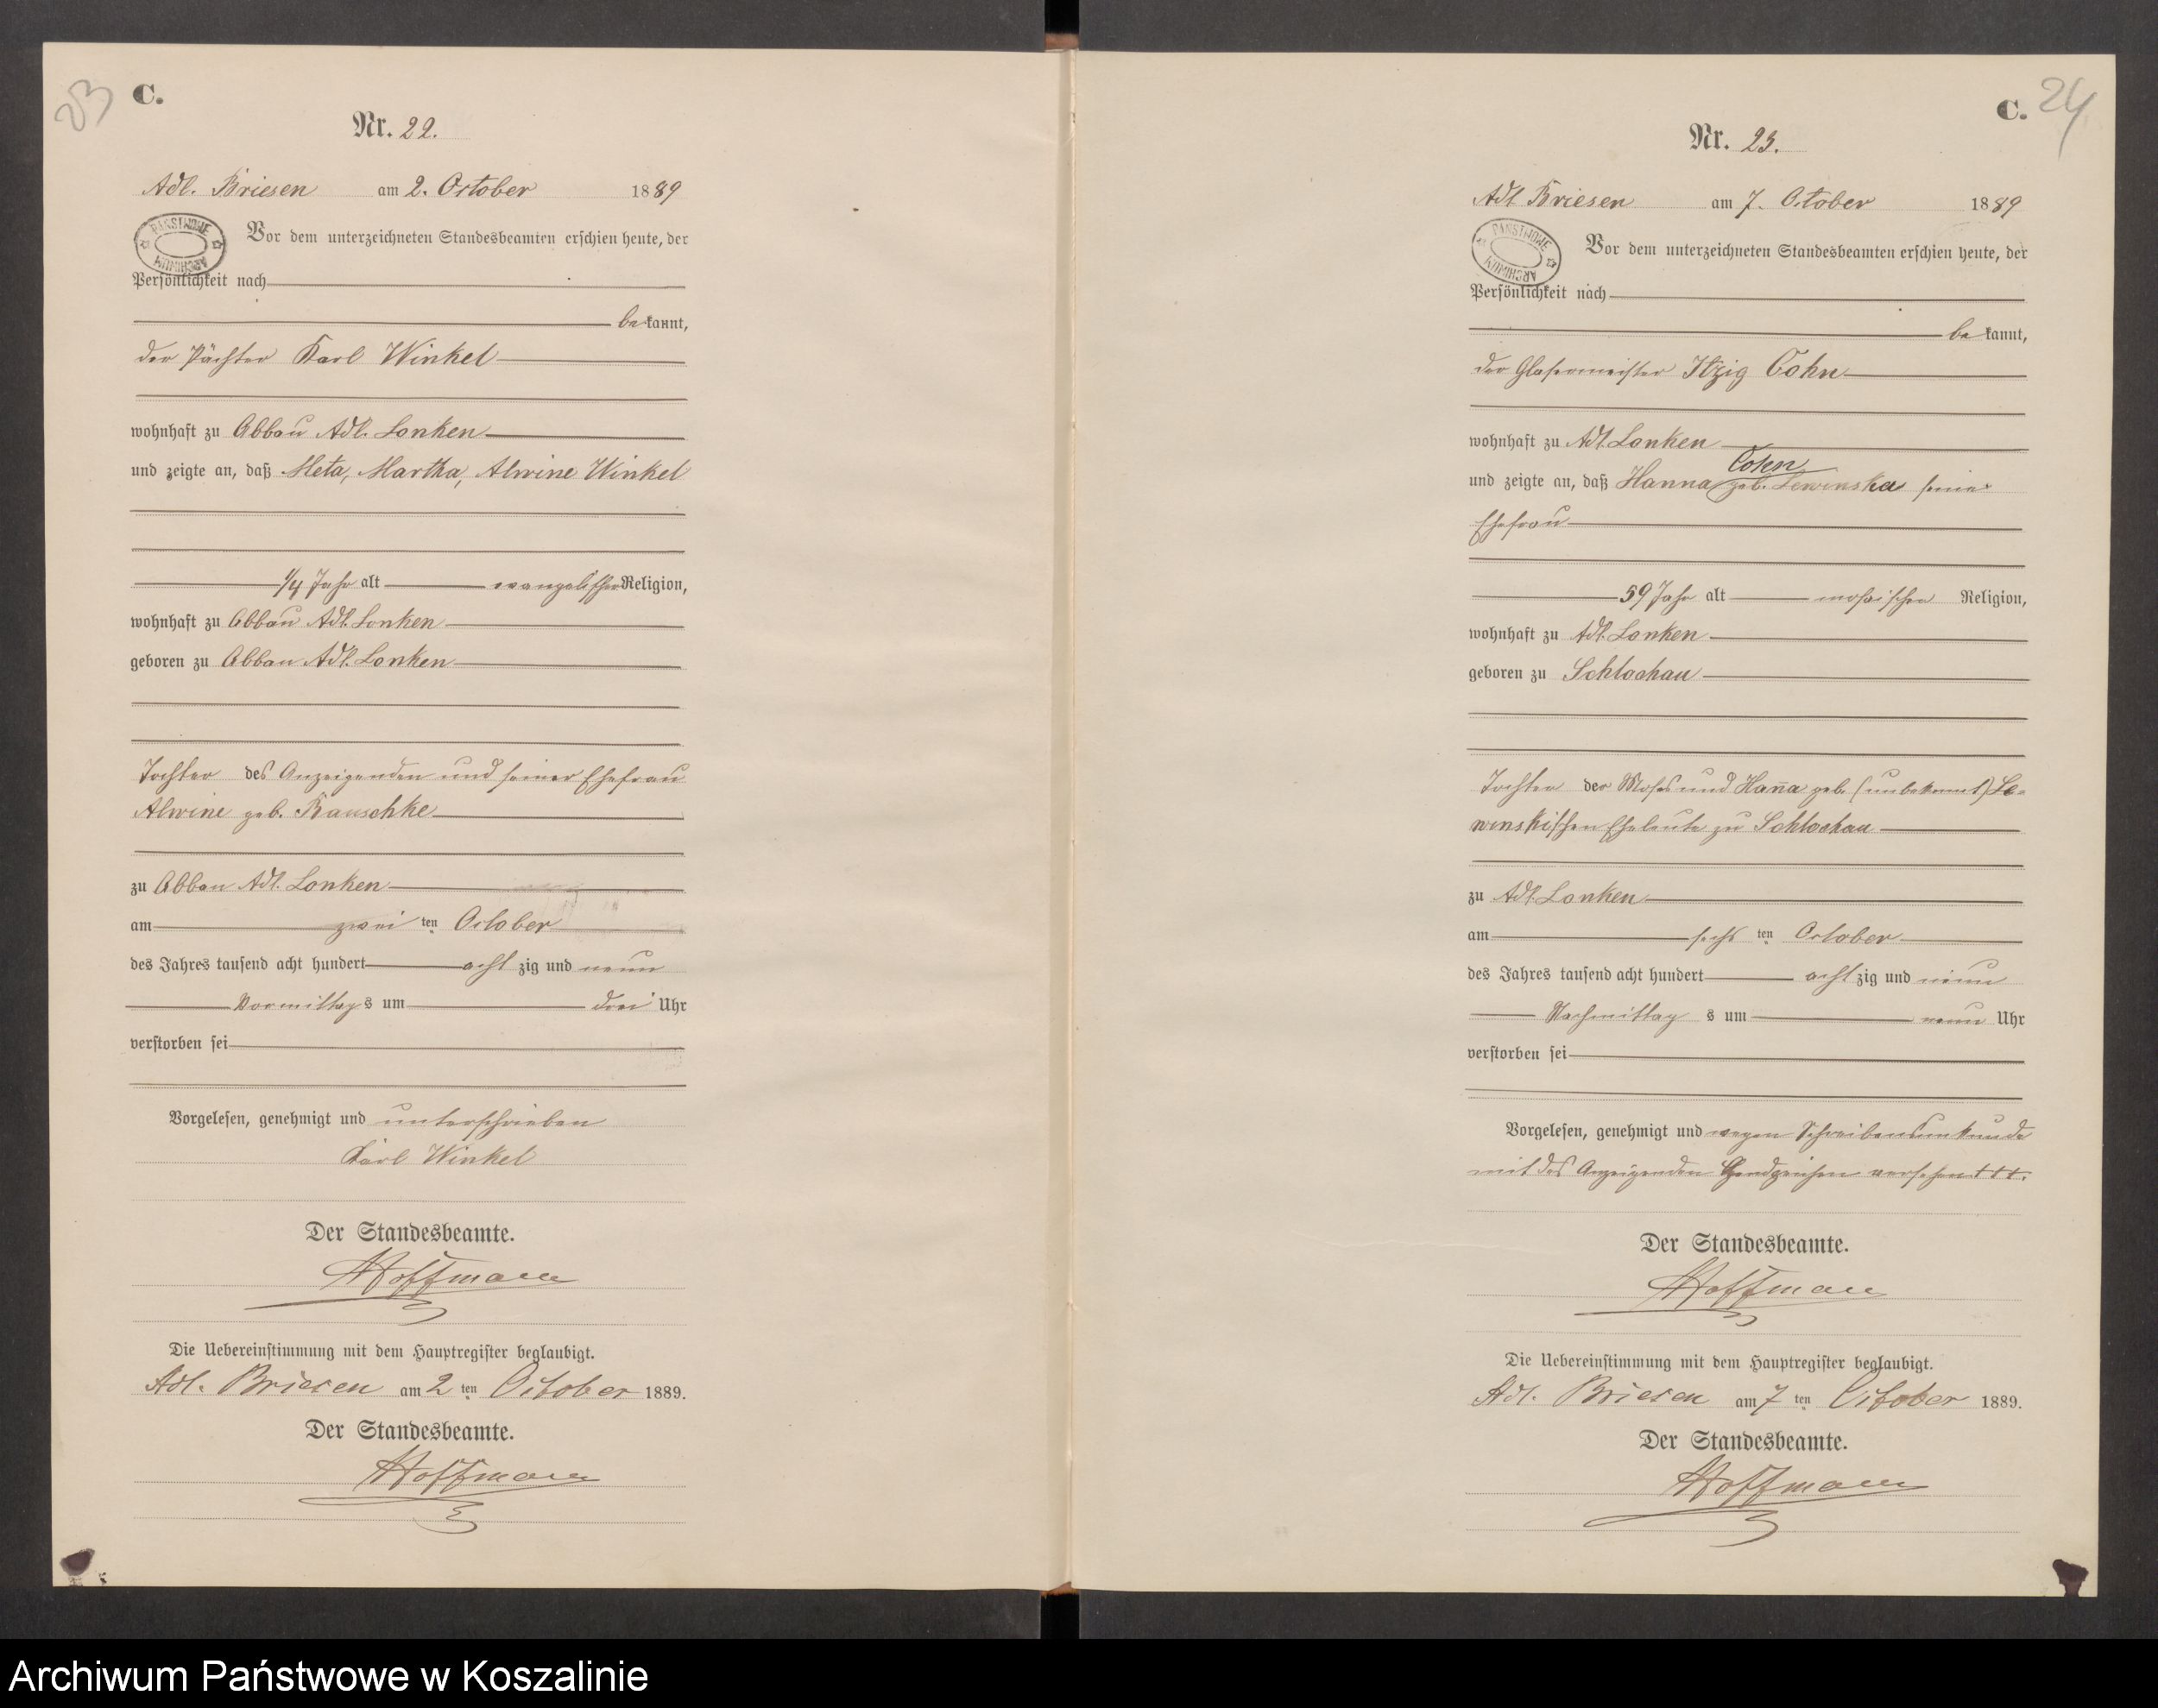 23
C.
Nr. 22.
Adl. Briesen am 2. October 1889
PAŃSTWOWE ARCHIWUM
Vor dem unterzeichneten Standesbeamten erschien heute, der
Persönlichkeit nach
bekannt,
der Pächter Karl Winkel
wohnhaft zu Abbau Adl. Lonken
und zeigte an, daß Meta, Martha, Alwine Winkel
1/4 Jahr alt evangelischer Religion,
wohnhaft zu Abbau Adl. Lonken
geboren zu Abbau Adl. Lonken
Tochter des Anzeigenden und seiner Ehefrau
Alwine geb. Rauschke
zu Abbau Adl. Lonken
am zwei ten October
des Jahres tausend acht hundert acht zig und neun
Vormittags um drei Uhr
verstorben sei
Vorgelesen, genehmigt und unterschrieben
Karl Winkel
Der Standesbeamte.
Hoffmann
Die Uebereinstimmung mit dem Hauptregister beglaubigt.
Adl. Briesen am 2 ten October 1889.
Der Standesbeamte.
Hoffmann
C. 24
Nr. 23.
Adl Briesen am 7. October 1889
PAŃSTWOWE ARCHIWUM
Vor dem unterzeichneten Standesbeamten erschien heute, der
Persönlichkeit nach
bekannt,
der Glasermeister Itzig Cohn
wohnhaft zu Adl. Lonken
Cohn
und zeigte an, daß Hanna geb. Lewinska seine
Ehefrau
59 Jahr alt mosaischer Religion,
wohnhaft zu Adl. Lonken
geboren zu Schlochau
Tochter der Moses und Hanna geb. (unbekannt) Le-
winskischen Eheleute zu Schlochau
zu Adl. Lonken
am sechs ten October
des Jahres tausend acht hundert acht zig und neun
Nachmittag s um neun Uhr
verstorben sei
Vorgelesen, genehmigt und wegen Schreibensunkunde
mit des Anzeigenden Handzeichen versehen +++.
Der Standesbeamte.
Hoffmann
Die Uebereinstimmung mit dem Hauptregister beglaubigt.
Adl. Briesen am 7 ten October 1889.
Der Standesbeamte.
Hoffmann
Archiwum Państwowe w Koszalinie